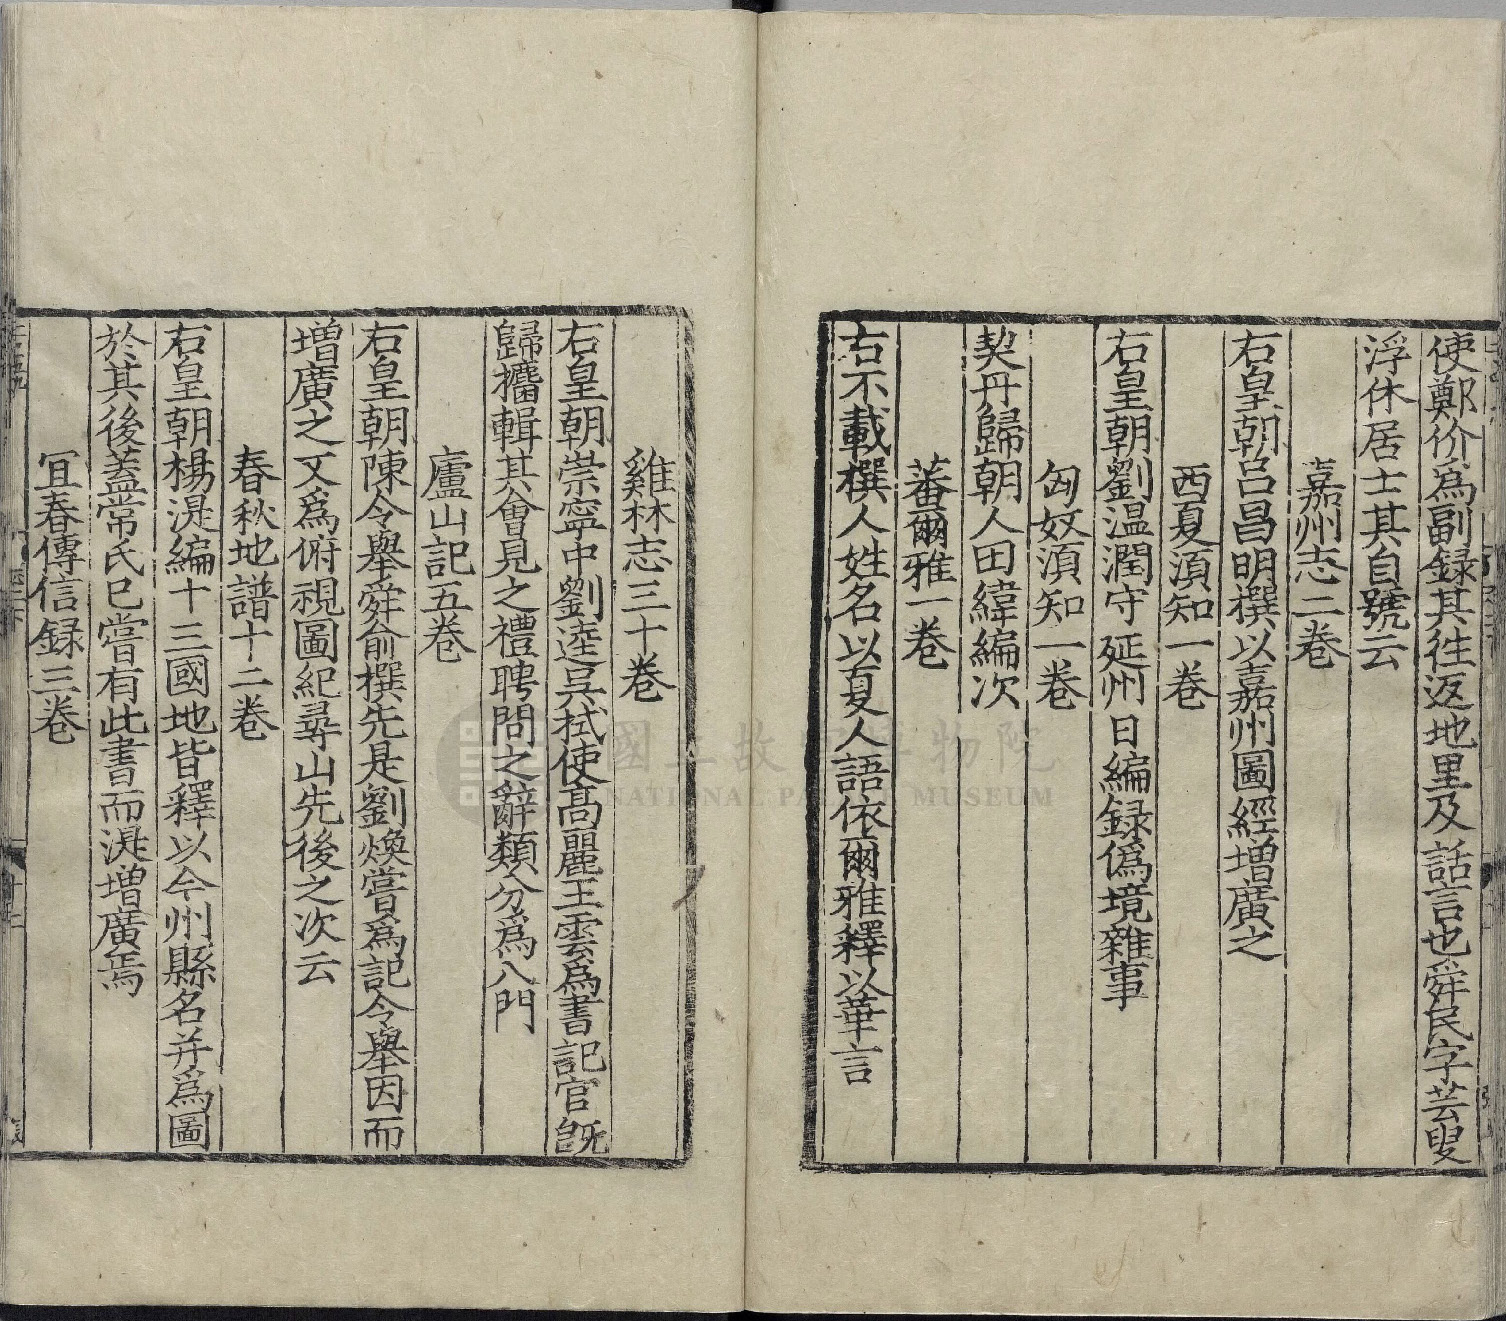 使鄭价爲副録其往返地里及話言也舜民字芸叟
浮休居士其自號云
嘉州志二卷
右皇朝吕昌明撰以嘉州圖經増廣之
西夏湏知一卷
右皇朝劉温潤守延州日編録僞境雜事
匈奴湏知一卷
契丹歸朝人田緯編次
蕃爾雅一卷
右不載撰人姓名以夏人語依爾雅釋以華言
雞林志三十卷
右皇朝崇寧中劉逵吳拭使高麗王雲爲書記官既
歸攟輯其會見之禮聘問之辭類分爲八門
廬山記五卷
右皇朝陳令舉舜俞撰先是劉煥嘗爲記令舉因而
増廣之又爲俯視圖紀尋山先後之次云
春秋地譜十二卷
右皇朝楊湜編十三國地皆釋以今州縣名并爲圖
於其後蓋常氏已嘗有此書而湜増廣焉
冝春傳信録三卷
國立故宮博物院
NATIONAL PALACE MUSEUM